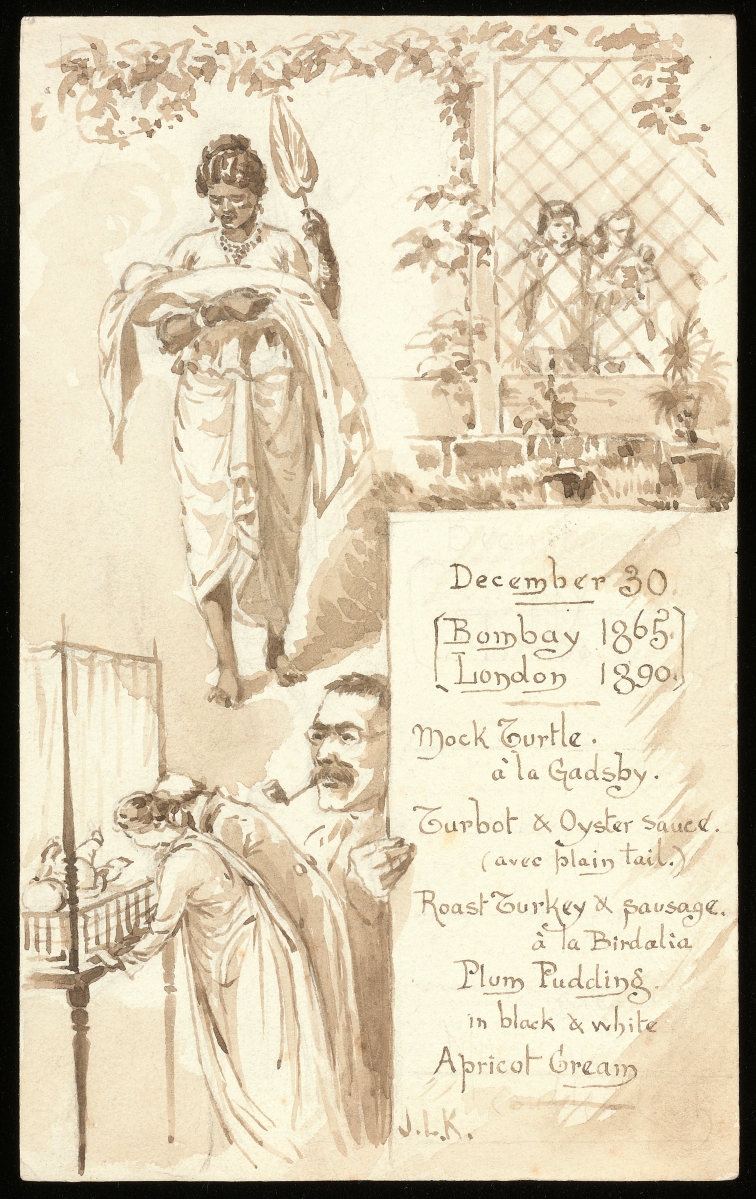 December 30.
[Bombay 1865.
London 1890.]
Mock Turtle.
à la Gadsby.
Turbot & Oyster sauce.
(avec plain tail.)
Roast Turkey & sausage.
à la Birdalia
Plum Pudding.
in black & white
Apricot Cream
J.L.K.